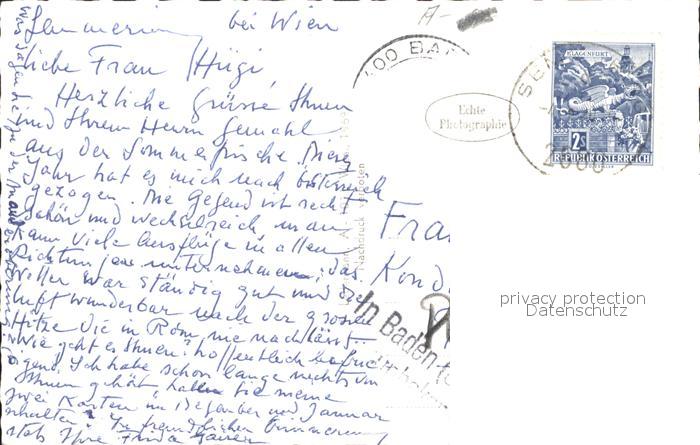 Semmering bei Wien
Liebe Frau Hügi,
Herzliche Grüsse Ihnen
und Ihrem Herrn Gemahl
aus der Sommerfrische. Dieses
Jahr hat es mich nach Österreich
gezogen. Die Gegend ist recht
schön und wechselreich, man
kann viele Ausflüge in allen
Richtungen unternehmen, das
Wetter war ständig gut und die
Luft wunderbar nach der grossen
Hitze die in Rom nie nachlässt.
Wie geht es Ihnen? hoffentlich
Ich habe schon lange nichts von
Ihnen gehört haben Sie meine
zwei Karten im Dezember und Januar
erhalten? In freundlicher Erinnerung
stets Ihre Frida
A-
Echte
Photographie
Nachdruck verboten
KLAGENFURT
2S
REPUBLIK ÖSTERREICH
In Baden
privacy protection
Datenschutz